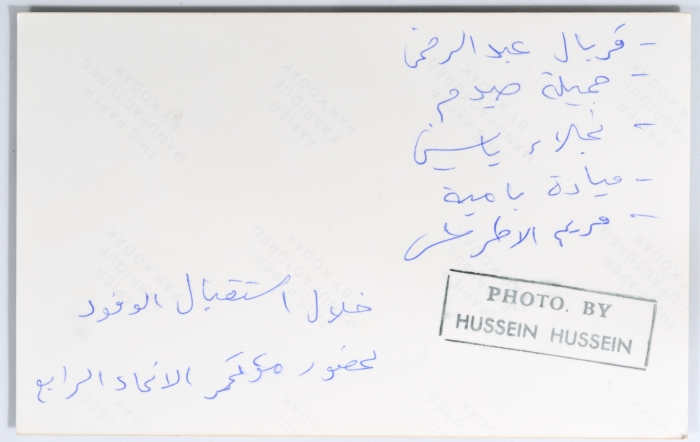 - فريال عبد الرحمن
- جميلة صيدم
- نجلاء ياسين
- ميادة بامية
- مريم الاطرش
خلال استقبال الوفود
لحضور مؤتمر الاتحاد الرابع
PHOTO. BY
HUSSEIN HUSSEIN